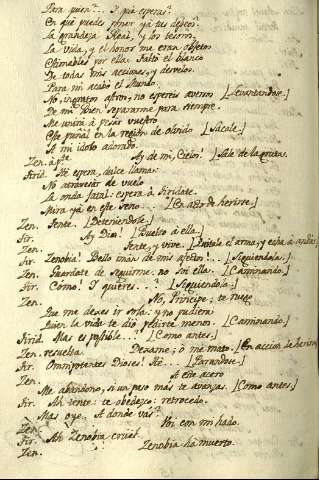 Para quien?.. I qué esperas?
En qué puedes poner yá tus deseos?
La grandeza Real, y los tesoros,
La vida, y el honor me eran objetos
Estimables por ella: faltó el blanco
De todas mis acciones, y desvelos.
Para mi acabó el Mundo.
No, ingratos astros, no espereis averos [Levantandose.]
De mi Bien separarme para siempre.
Me unirá á pesar vuestro
Este puñal en la region de olvido [Sácale.]
A mi idolo adorado.
Zen. á pte. Ay de mi, Cielos! [Sale de la gruta.]
Tirid. Mi espera, dulce llama:
No atraveses de vuelo
La onda fatal: espera á Tiridate.
Mira yá en este seno... [En acto de herirse.]
Zen. Tente. [Deteniendole.]
Tir. Ay Dio! [Vuelto á ella.]
Zen. Tente, y vive. [Quitale el arma, y echa á andar]
Tir. Zenobia! Bello imán de mi afecto!.. [Siguiendola.]
Zen. Guardate de seguirme: no soi ella. [Caminando.]
Tir. Como! I quieres...? [Siguiendola.]
Zen. No, Principe; te ruego
Que me dexes ir sola: y no pudiera
Quien la vida te dió pedirte menos. [Caminando.]
Tirid. Mas es posible..? [Como antes.]
Zen. resuelta. Dexame; ó me mato. [En accion de herirse]
Tir. Omnipotentes Dioses! Ha... [Parandose.]
Zen. A este acero
Me abandono, si un paso más te avanzas. [Como antes.]
Tir. Ah tente: te obedezco: retrocedo.
Mas oye. A donde vás?
Zen. Voi con mi hado.
Tir. Ah Zenobia cruel!
Zen. Zenobia há muerto.